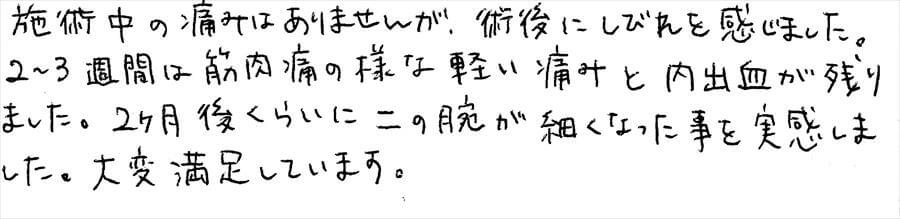 施術中の痛みはありませんが、術後にしびれを感じました。
2~3週間は筋肉痛の様な軽い痛みと内出血が残り
ました。2ヶ月後くらいに二の腕が細くなった事を実感しま
した。大変満足しています。